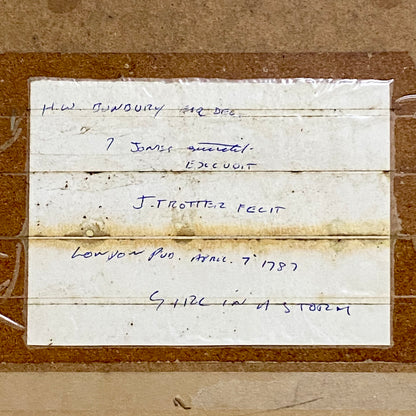 H.W. BUNBURY ESQ DEL.
? JONES
EXCUDIT
J. TROTTER FECIT
LONDON PUB. APRIL. 7 1787
GIRL IN A STORM